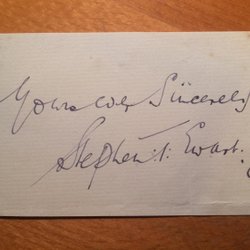 Yours very Sincerely
Stephen T. Ewart.